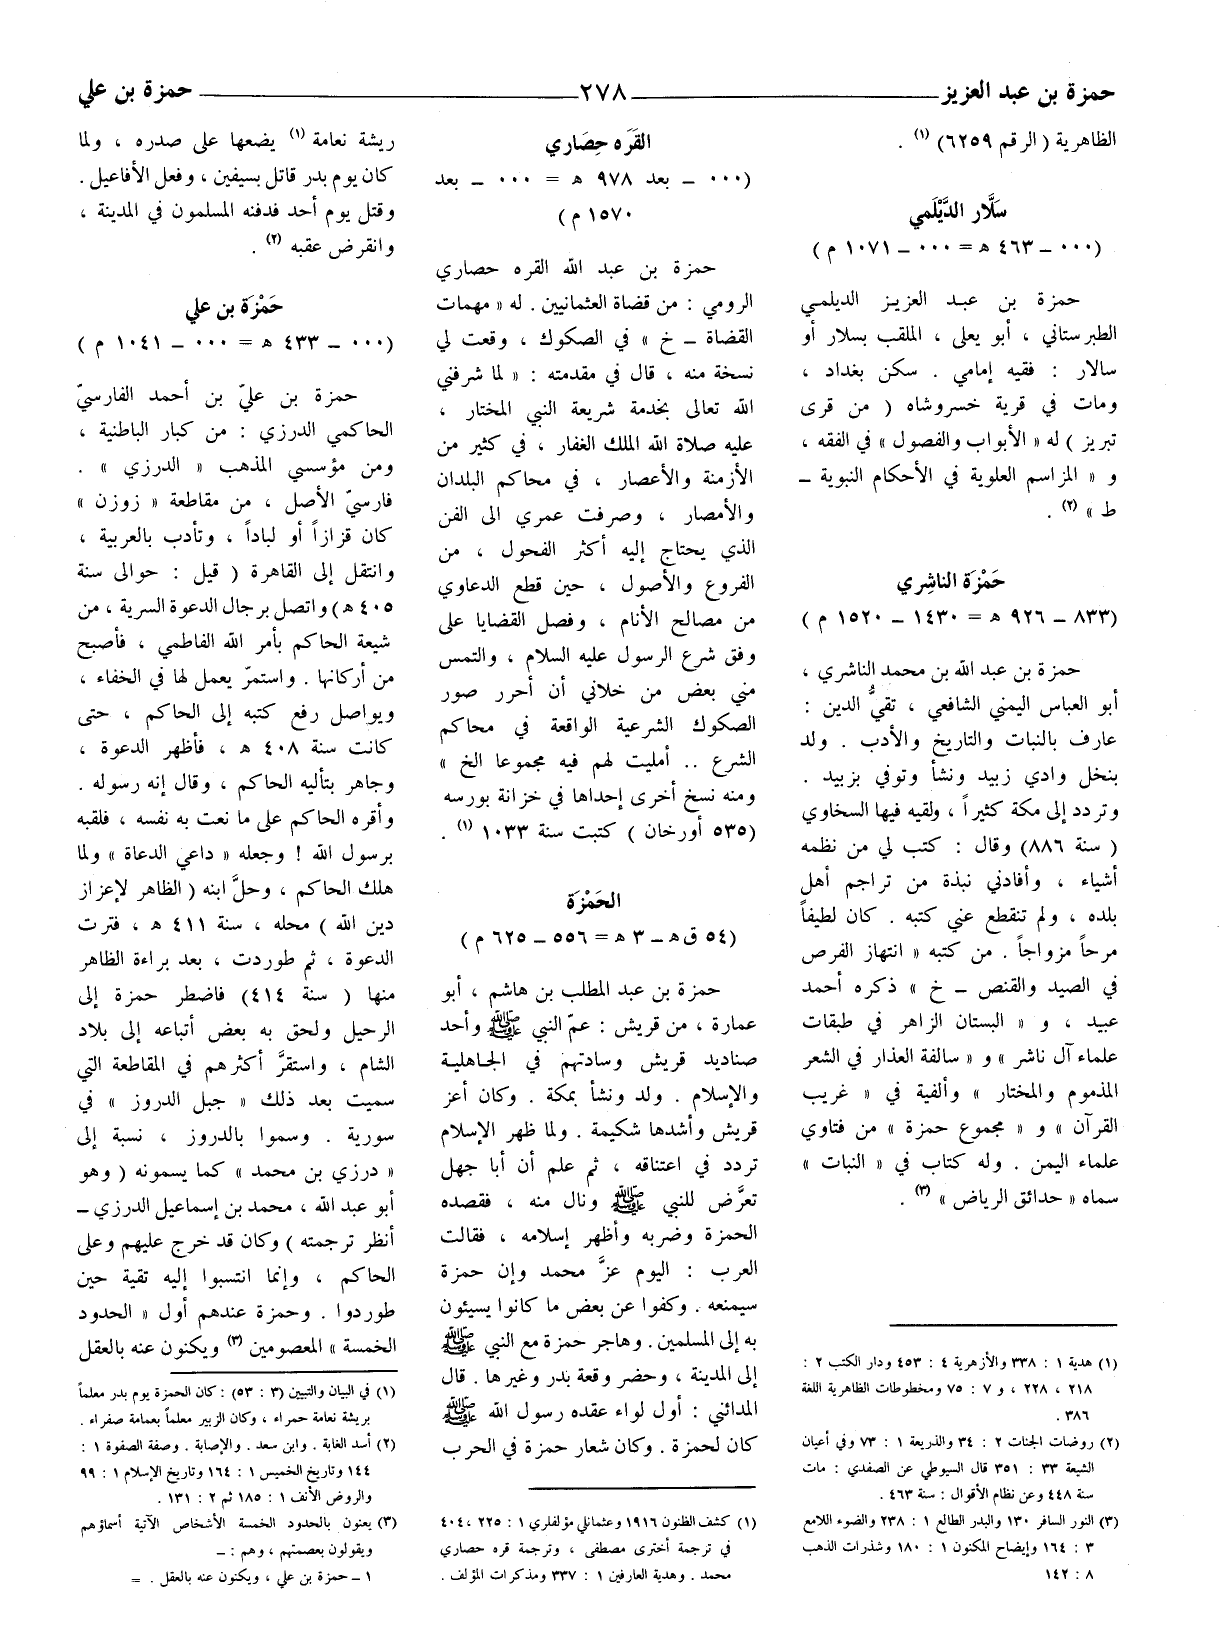 حمزة بن عبد العزيز ــــــ ٢٧٨ ــــــ حمزة بن علي
الظاهرية ( الرقم ٦٢٥٩) (١) .
سَلَّار الدَّيْلَمي
(٠٠٠ ــ ٤٦٣ ﻫ = ٠٠٠ ــ ١٠٧١ م )
حمزة بن عبد العزيز الديلمي
الطبرستاني ، أبو يعلى ، الملقب بسلار أو
سالار : فقيه إمامي . سكن بغداد ،
ومات في قرية خسروشاه ( من قرى
تبريز ) له « الأبواب والفصول » في الفقه ،
و « المراسم العلوية في الأحكام النبوية ــ
ط » (٢) .
حَمْزَة الناشِري
(٨٣٣ ــ ٩٢٦ ﻫ = ١٤٣٠ ــ ١٥٢٠ م )
حمزة بن عبد الله بن محمد الناشري ،
أبو العباس اليمني الشافعي ، تقيُّ الدين :
عارف بالنبات والتاريخ والأدب . ولد
بنخل وادي زبيد ونشأ وتوفي بزبيد .
وتردد إلى مكة كثيراً ، ولقيه فيها السخاوي
( سنة ٨٨٦) وقال : كتب لي من نظمه
أشياء ، وأفادني نبذة من تراجم أهل
بلده ، ولم تنقطع عني كتبه . كان لطيفاً
مرحاً مزواجاً . من كتبه « انتهاز الفرص
في الصيد والقنص ــ خ » ذكره أحمد
عبيد ، و « البستان الزاهر في طبقات
علماء آل ناشر » و « سالفة العذار في الشعر
المذموم والمختار » وألفية في « غريب
القرآن » و « مجموع حمزة » من فتاوي
علماء اليمن . وله كتاب في « النبات »
سماه « حدائق الرياض » (٣) .
(١) هدية ١ : ٣٣٨ والأزهرية ٤ : ٤٥٣ ودار الكتب ٢ :
٢١٨ ، ٢٢٨ ، و ٧ : ٧٥ ومخطوطات الظاهرية اللغة
٣٨٦ .
(٢) روضات الجنات ٢ : ٣٤ والذريعة ١ : ٧٣ وفي أعيان
الشيعة ٣٣ : ٣٥١ قال السيوطي عن الصفدي : مات
سنة ٤٤٨ وعن نظام الأقوال : سنة ٤٦٣ .
(٣) النور السافر ١٣٠ والبدر الطالع ١ : ٢٣٨ والضوء اللامع
٣ : ١٦٤ وإيضاح المكنون ١ : ١٨٠ وشذرات الذهب
٨ : ١٤٢
القَرَه حِصَاري
(٠٠٠ ــ بعد ٩٧٨ ﻫ = ٠٠٠ ــ بعد
١٥٧٠ م )
حمزة بن عبد الله القره حصاري
الرومي : من قضاة العثمانيين . له « مهمات
القضاة ــ خ » في الصكوك ، وقعت لي
نسخة منه ، قال في مقدمته : « لما شرفني
الله تعالى بخدمة شريعة النبي المختار ،
عليه صلاة الله الملك الغفار ، في كثير من
الأزمنة والأعصار ، في محاكم البلدان
والأمصار ، وصرفت عمري الى الفن
الذي يحتاج إليه أكثر الفحول ، من
الفروع والأصول ، حين قطع الدعاوي
من مصالح الأنام ، وفصل القضايا على
وفق شرع الرسول عليه السلام ، والتمس
مني بعض من خلاني أن أحرر صور
الصكوك الشرعية الواقعة في محاكم
الشرع .. أمليت لهم فيه مجموعا الخ »
ومنه نسخ أخرى إحداها في خزانة بورسه
(٥٣٥ أورخان ) كتبت سنة ١٠٣٣ (١) .
الحَمْزَة
(٥٤ ق ﻫ ــ ٣ ﻫ = ٥٥٦ ــ ٦٢٥ م )
حمزة بن عبد المطلب بن هاشم ، أبو
عمارة ، من قريش : عمّ النبي ﷺ وأحد
صناديد قريش وسادتهم في الجاهلية
والإسلام . ولد ونشأ بمكة . وكان أعز
قريش وأشدها شكيمة . ولما ظهر الإسلام
تردد في اعتناقه ، ثم علم أن أبا جهل
تعرَّض للنبي ﷺ ونال منه ، فقصده
الحمزة وضربه وأظهر إسلامه ، فقالت
العرب : اليوم عزَّ محمد وإن حمزة
سيمنعه . وكفوا عن بعض ما كانوا يسيئون
به إلى المسلمين . وهاجر حمزة مع النبي ﷺ
إلى المدينة ، وحضر وقعة بدر وغيرها . قال
المدائني : أول لواء عقده رسول الله ﷺ
كان لحمزة . وكان شعار حمزة في الحرب
(١) كشف الظنون ١٩١٦ وعثمانلي مؤلفلري ١ : ٢٢٥ ، ٤٠٤
في ترجمة أخترى مصطفى ، وترجمة قره حصاري
محمد . وهدية العارفين ١ : ٣٣٧ ومذكرات المؤلف .
ريشة نعامة (١) يضعها على صدره ، ولما
كان يوم بدر قاتل بسيفين ، وفعل الأفاعيل .
وقتل يوم أحد فدفنه المسلمون في المدينة ،
وانقرض عقبه (٢) .
حَمْزَة بن علي
(٠٠٠ ــ ٤٣٣ ﻫ = ٠٠٠ ــ ١٠٤١ م )
حمزة بن عليّ بن أحمد الفارسيّ
الحاكمي الدرزي : من كبار الباطنية ،
ومن مؤسسي المذهب « الدرزي » .
فارسيّ الأصل ، من مقاطعة « زوزن »
كان قزازاً أو لباداً ، وتأدب بالعربية ،
وانتقل إلى القاهرة ( قيل : حوالى سنة
٤٠٥ ﻫ ) واتصل برجال الدعوة السرية ، من
شيعة الحاكم بأمر الله الفاطمي ، فأصبح
من أركانها . واستمرّ يعمل لها في الخفاء ،
ويواصل رفع كتبه إلى الحاكم ، حتى
كانت سنة ٤٠٨ ﻫ ، فأظهر الدعوة ،
وجاهر بتأليه الحاكم ، وقال إنه رسوله .
وأقره الحاكم على ما نعت به نفسه ، فلقبه
برسول الله ! وجعله « داعي الدعاة » ولما
هلك الحاكم ، وحلَّ ابنه ( الظاهر لإعزاز
دين الله ) محله ، سنة ٤١١ ﻫ ، فترت
الدعوة ، ثم طوردت ، بعد براءة الظاهر
منها ( سنة ٤١٤) فاضطر حمزة إلى
الرحيل ولحق به بعض أتباعه إلى بلاد
الشام ، واستقرَّ أكثرهم في المقاطعة التي
سميت بعد ذلك « جبل الدروز » في
سورية . وسموا بالدروز ، نسبة إلى
« درزي بن محمد » كما يسمونه ( وهو
أبو عبد الله ، محمد بن إسماعيل الدرزي ــ
أنظر ترجمته ) وكان قد خرج عليهم وعلى
الحاكم ، وإنما انتسبوا إليه تقية حين
طوردوا . وحمزة عندهم أول « الحدود
الخمسة » المعصومين (٣) ويكنون عنه بالعقل
(١) في البيان والتبيين (٣ : ٥٣) : كان الحمزة يوم بدر معلماً
بريشة نعامة حمراء ، وكان الزبير معلماً بعمامة صفراء .
(٢) أسد الغابة . وابن سعد . والإصابة . وصفة الصفوة ١ :
١٤٤ وتاريخ الخميس ١ : ١٦٤ وتاريخ الإسلام ١ : ٩٩
والروض الأنف ١ : ١٨٥ ثم ٢ : ١٣١ .
(٣) يعنون بالحدود الخمسة الأشخاص الآتية أسماؤهم
ويقولون بعصمتهم ، وهم : ــ
١ ــ حمزة بن علي ، ويكنون عنه بالعقل . =